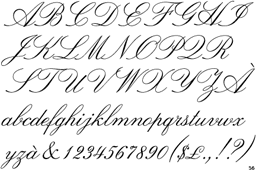 ABCDEFGHI
JKLMNOPQR
STUVWXYZÀ
abcdefghijklmnopqrstuvwx
yzà & 1234567890 ($£.,!?)
56